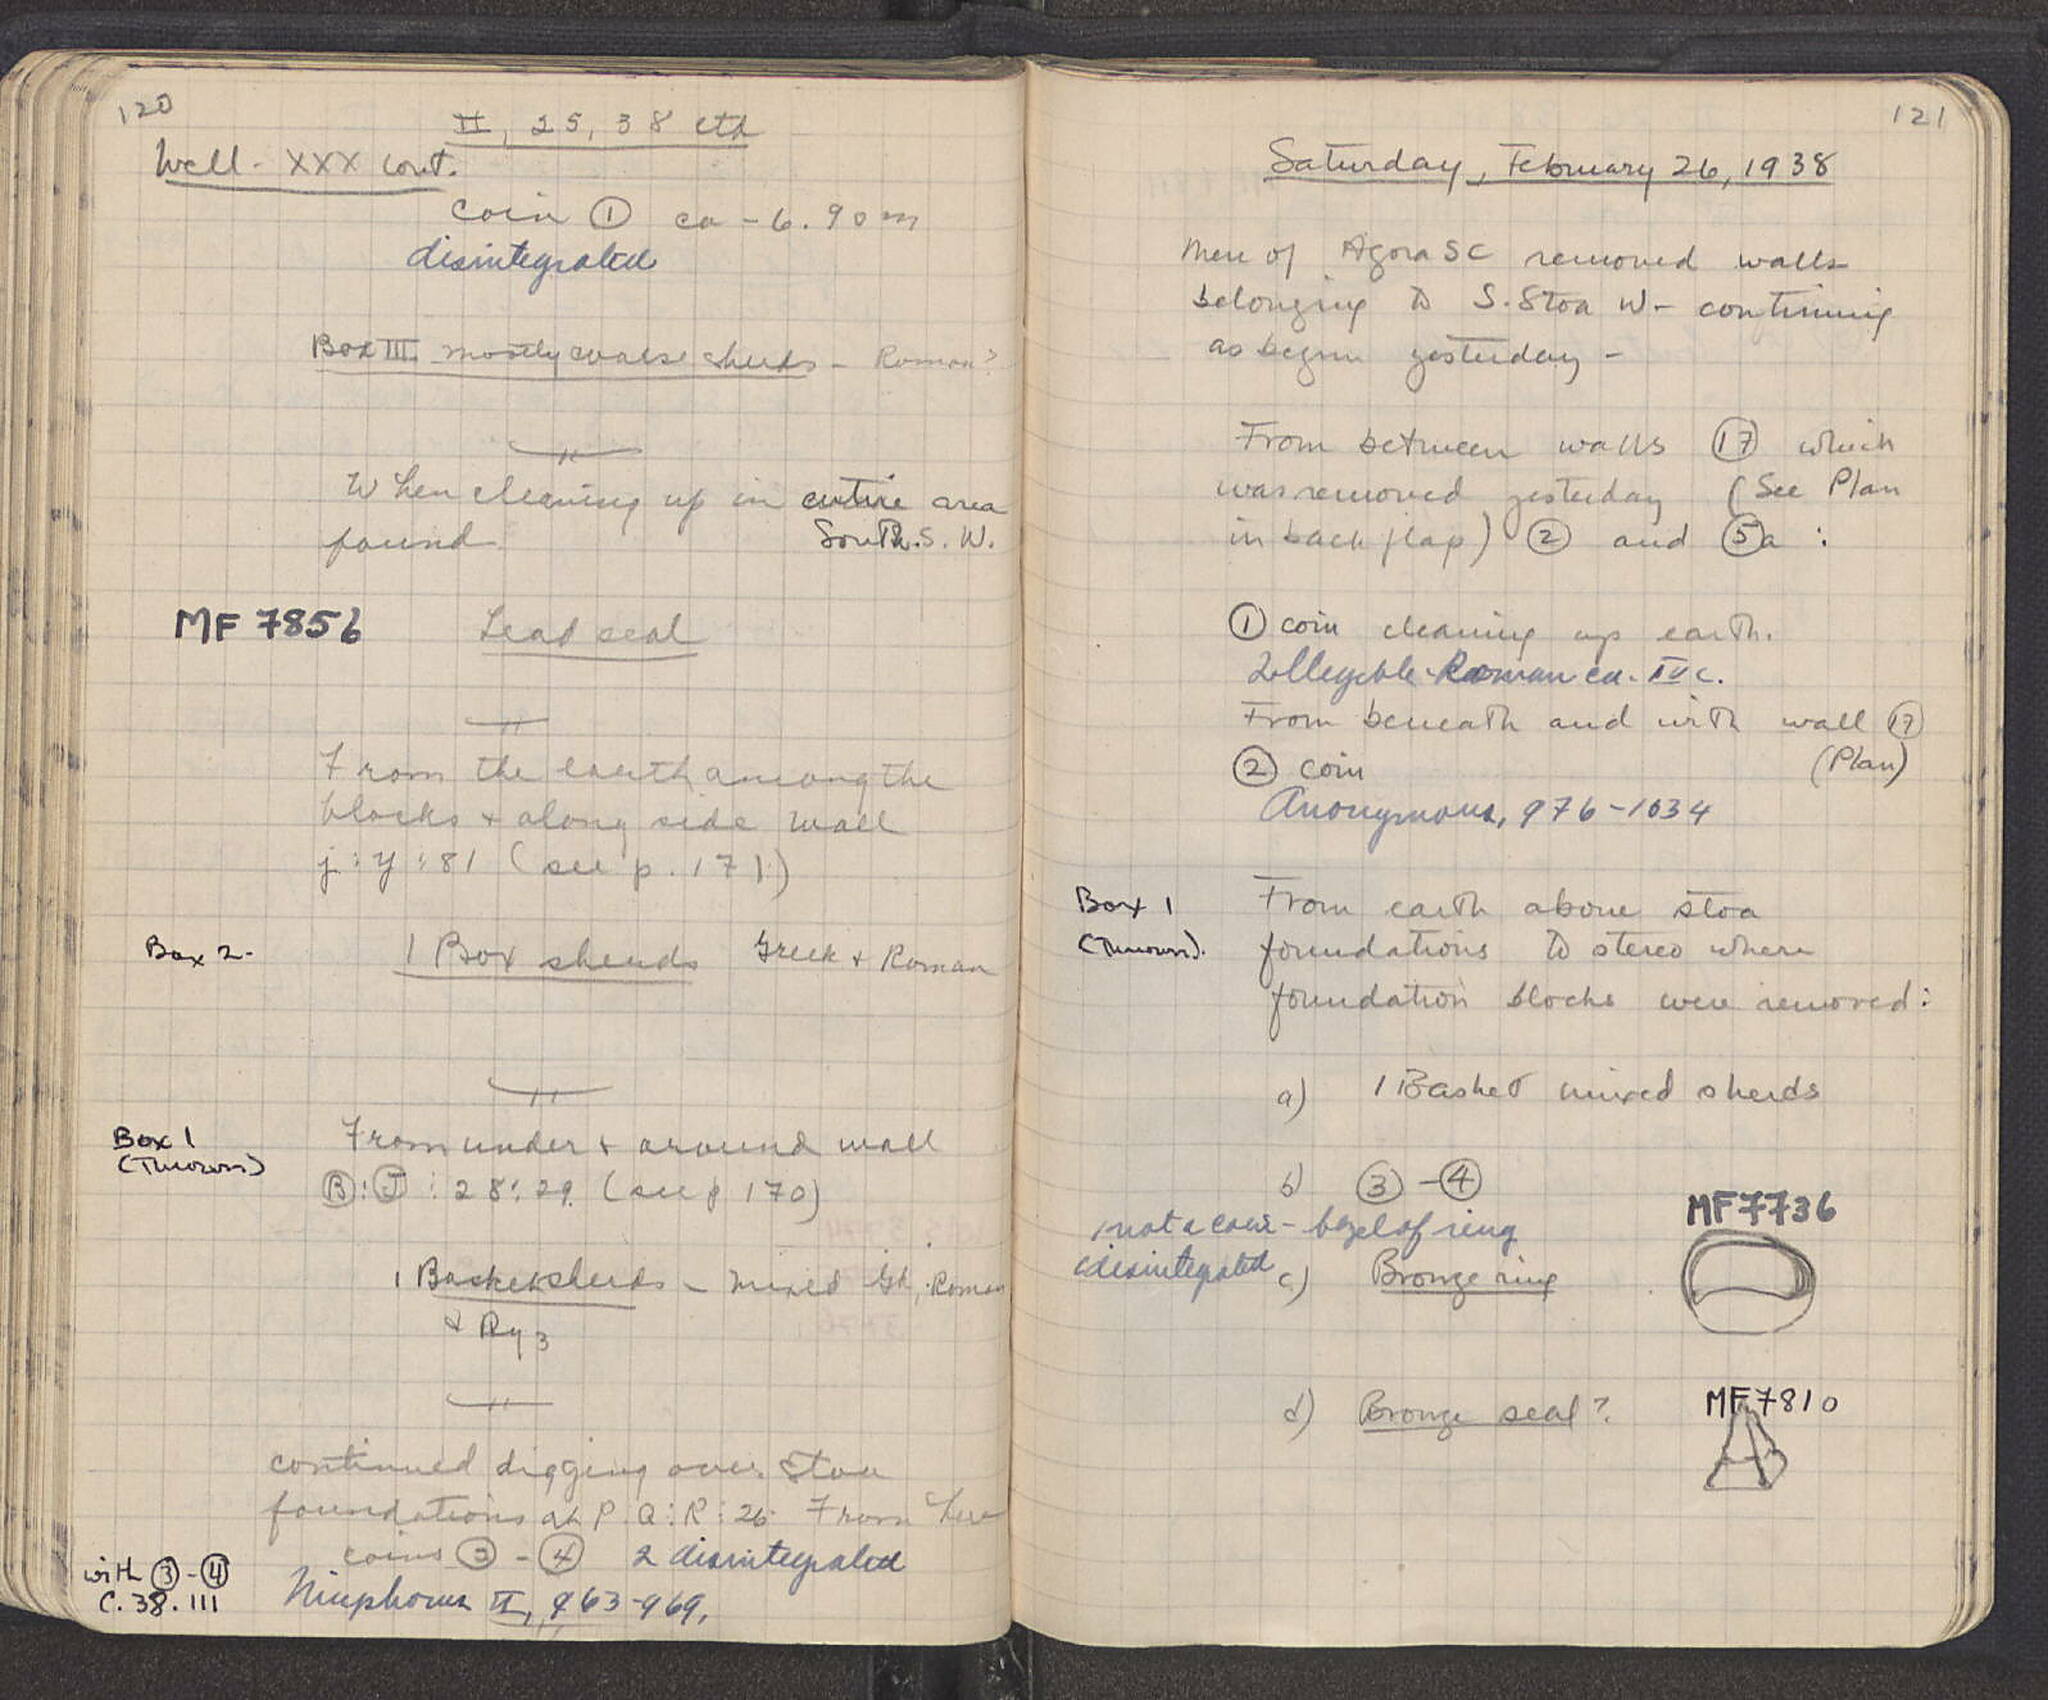 120
II, 25, 38 ctd
Well - XXX cont.
coin ① ca - 6.90 m
disintegrated
Box III mostly coarse sherds - Roman?
When cleaning up in entire area
found South. S. W.
MF 7856 Lead seal
From the earth among the
blocks + along side wall
j : y : 81 (see p. 171)
Box 2- 1 Box sherds Greek + Roman
Box 1
(Thrown)
From under + around wall
Ⓑ : Ⓙ : 28 : 29. (see p 170)
1 Basket sherds - mixed Gk, Roman
+ By 3
continued digging over Stoa
foundations at P. Q : R : 26. From here
coins ③ - ④ 2 disintegrated
with ③ - ④
C. 38. 111
Nicephorus II, 963-969.
121
Saturday, February 26, 1938
Men of Agora SC removed walls
belonging to S. Stoa W - continuing
as begun yesterday -
From between walls ⑰ which
was removed yesterday (See Plan
in back flap) ② and ⑤a :
① coin cleaning up earth.
Illegible Roman ca. IV c.
From beneath and with wall ⑰
② coin (Plan)
Anonymous, 976-1034
Box 1
(Thrown).
From earth above stoa
foundations to stereo where
foundation blocks were removed:
a) 1 Basket mixed sherds
b) ③ - ④
not a coin - bezel of ring
disintegrated
MF 7736
c) Bronze ring
d) Bronze seal? MF 7810